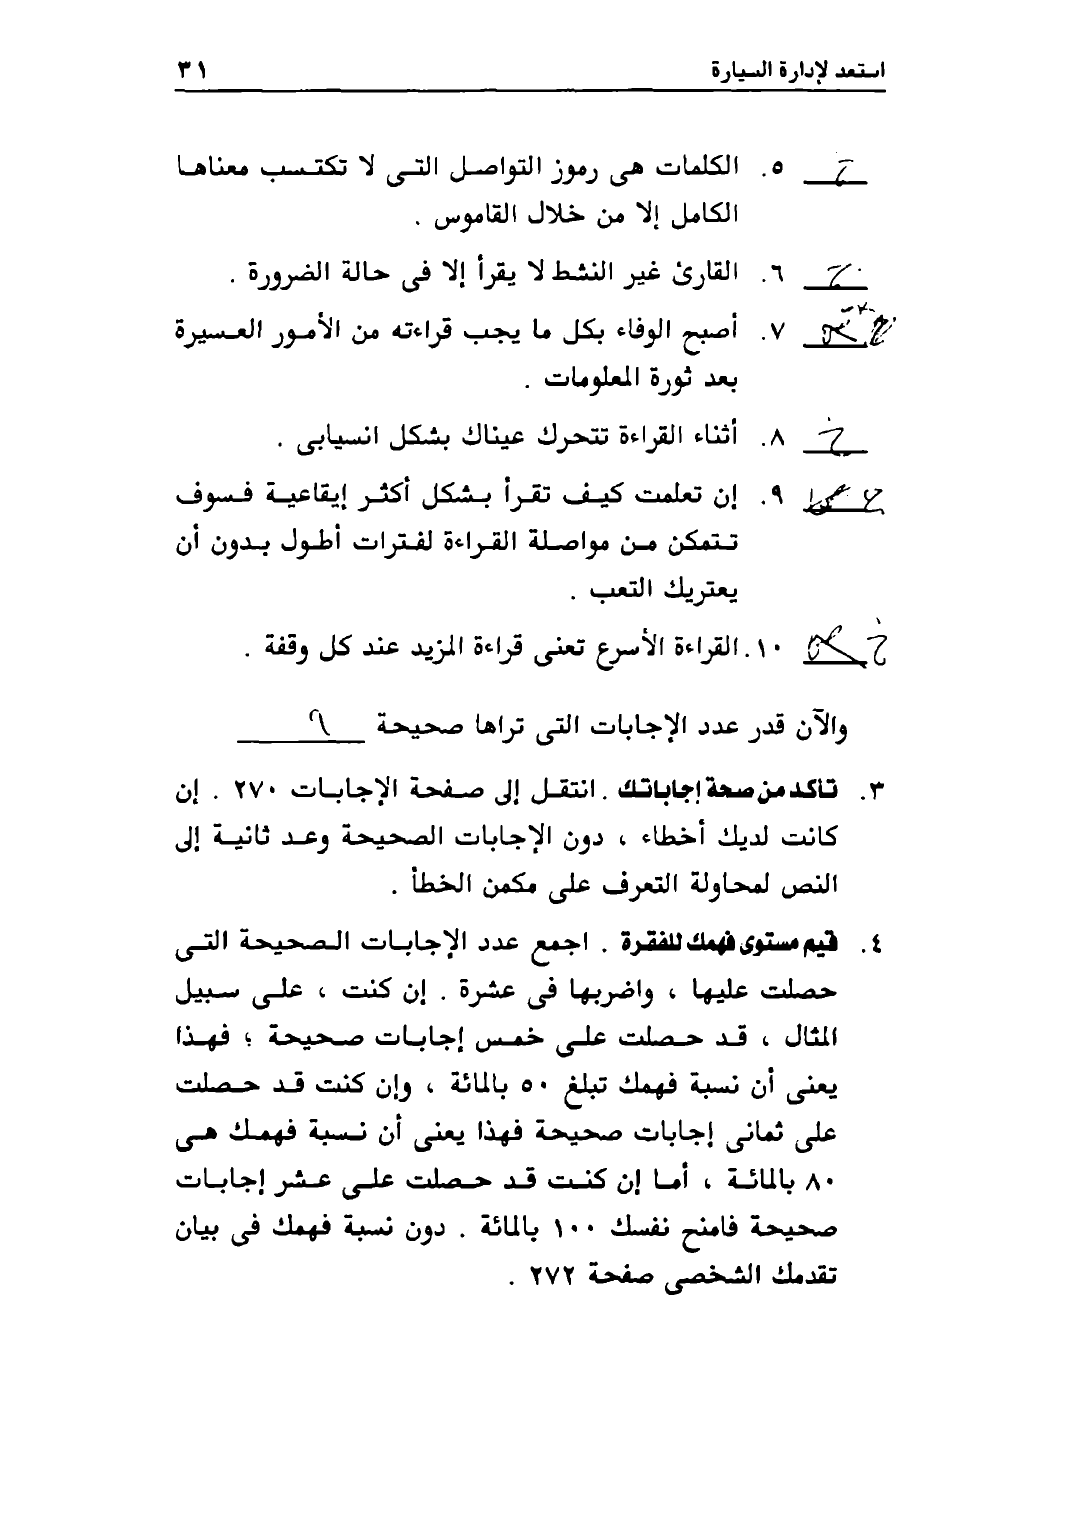 استعد لإدارة السيارة ٣١
خ ٥. الكلمات هى رموز التواصل التى لا تكتسب معناها
الكامل إلا من خلال القاموس .
٦. القارئ غير النشط لا يقرأ إلا فى حالة الضرورة .
٧. أصبح الوفاء بكل ما يجب قراءته من الأمور العسيرة
بعد ثورة المعلومات .
خ ٨. أثناء القراءة تتحرك عيناك بشكل انسيابى .
٩. إن تعلمت كيف تقرأ بشكل أكثر إيقاعية فسوف
تتمكن من مواصلة القراءة لفترات أطول بدون أن
يعتريك التعب .
خ ١٠. القراءة الأسرع تعنى قراءة المزيد عند كل وقفة .
والآن قدر عدد الإجابات التى تراها صحيحة ٩
٣. تأكد من صحة إجاباتك . انتقل إلى صفحة الإجابات ٢٧٠ . إن
كانت لديك أخطاء ، دون الإجابات الصحيحة وعد ثانية إلى
النص لمحاولة التعرف على مكمن الخطأ .
٤. قيم مستوى فهمك للفقرة . اجمع عدد الإجابات الصحيحة التى
حصلت عليها ، واضربها فى عشرة . إن كنت ، على سبيل
المثال ، قد حصلت على خمس إجابات صحيحة ؛ فهذا
يعنى أن نسبة فهمك تبلغ ٥٠ بالمائة ، وإن كنت قد حصلت
على ثمانى إجابات صحيحة فهذا يعنى أن نسبة فهمك هى
٨٠ بالمائة ، أما إن كنت قد حصلت على عشر إجابات
صحيحة فامنح نفسك ١٠٠ بالمائة . دون نسبة فهمك فى بيان
تقدمك الشخصى صفحة ٢٧٢ .